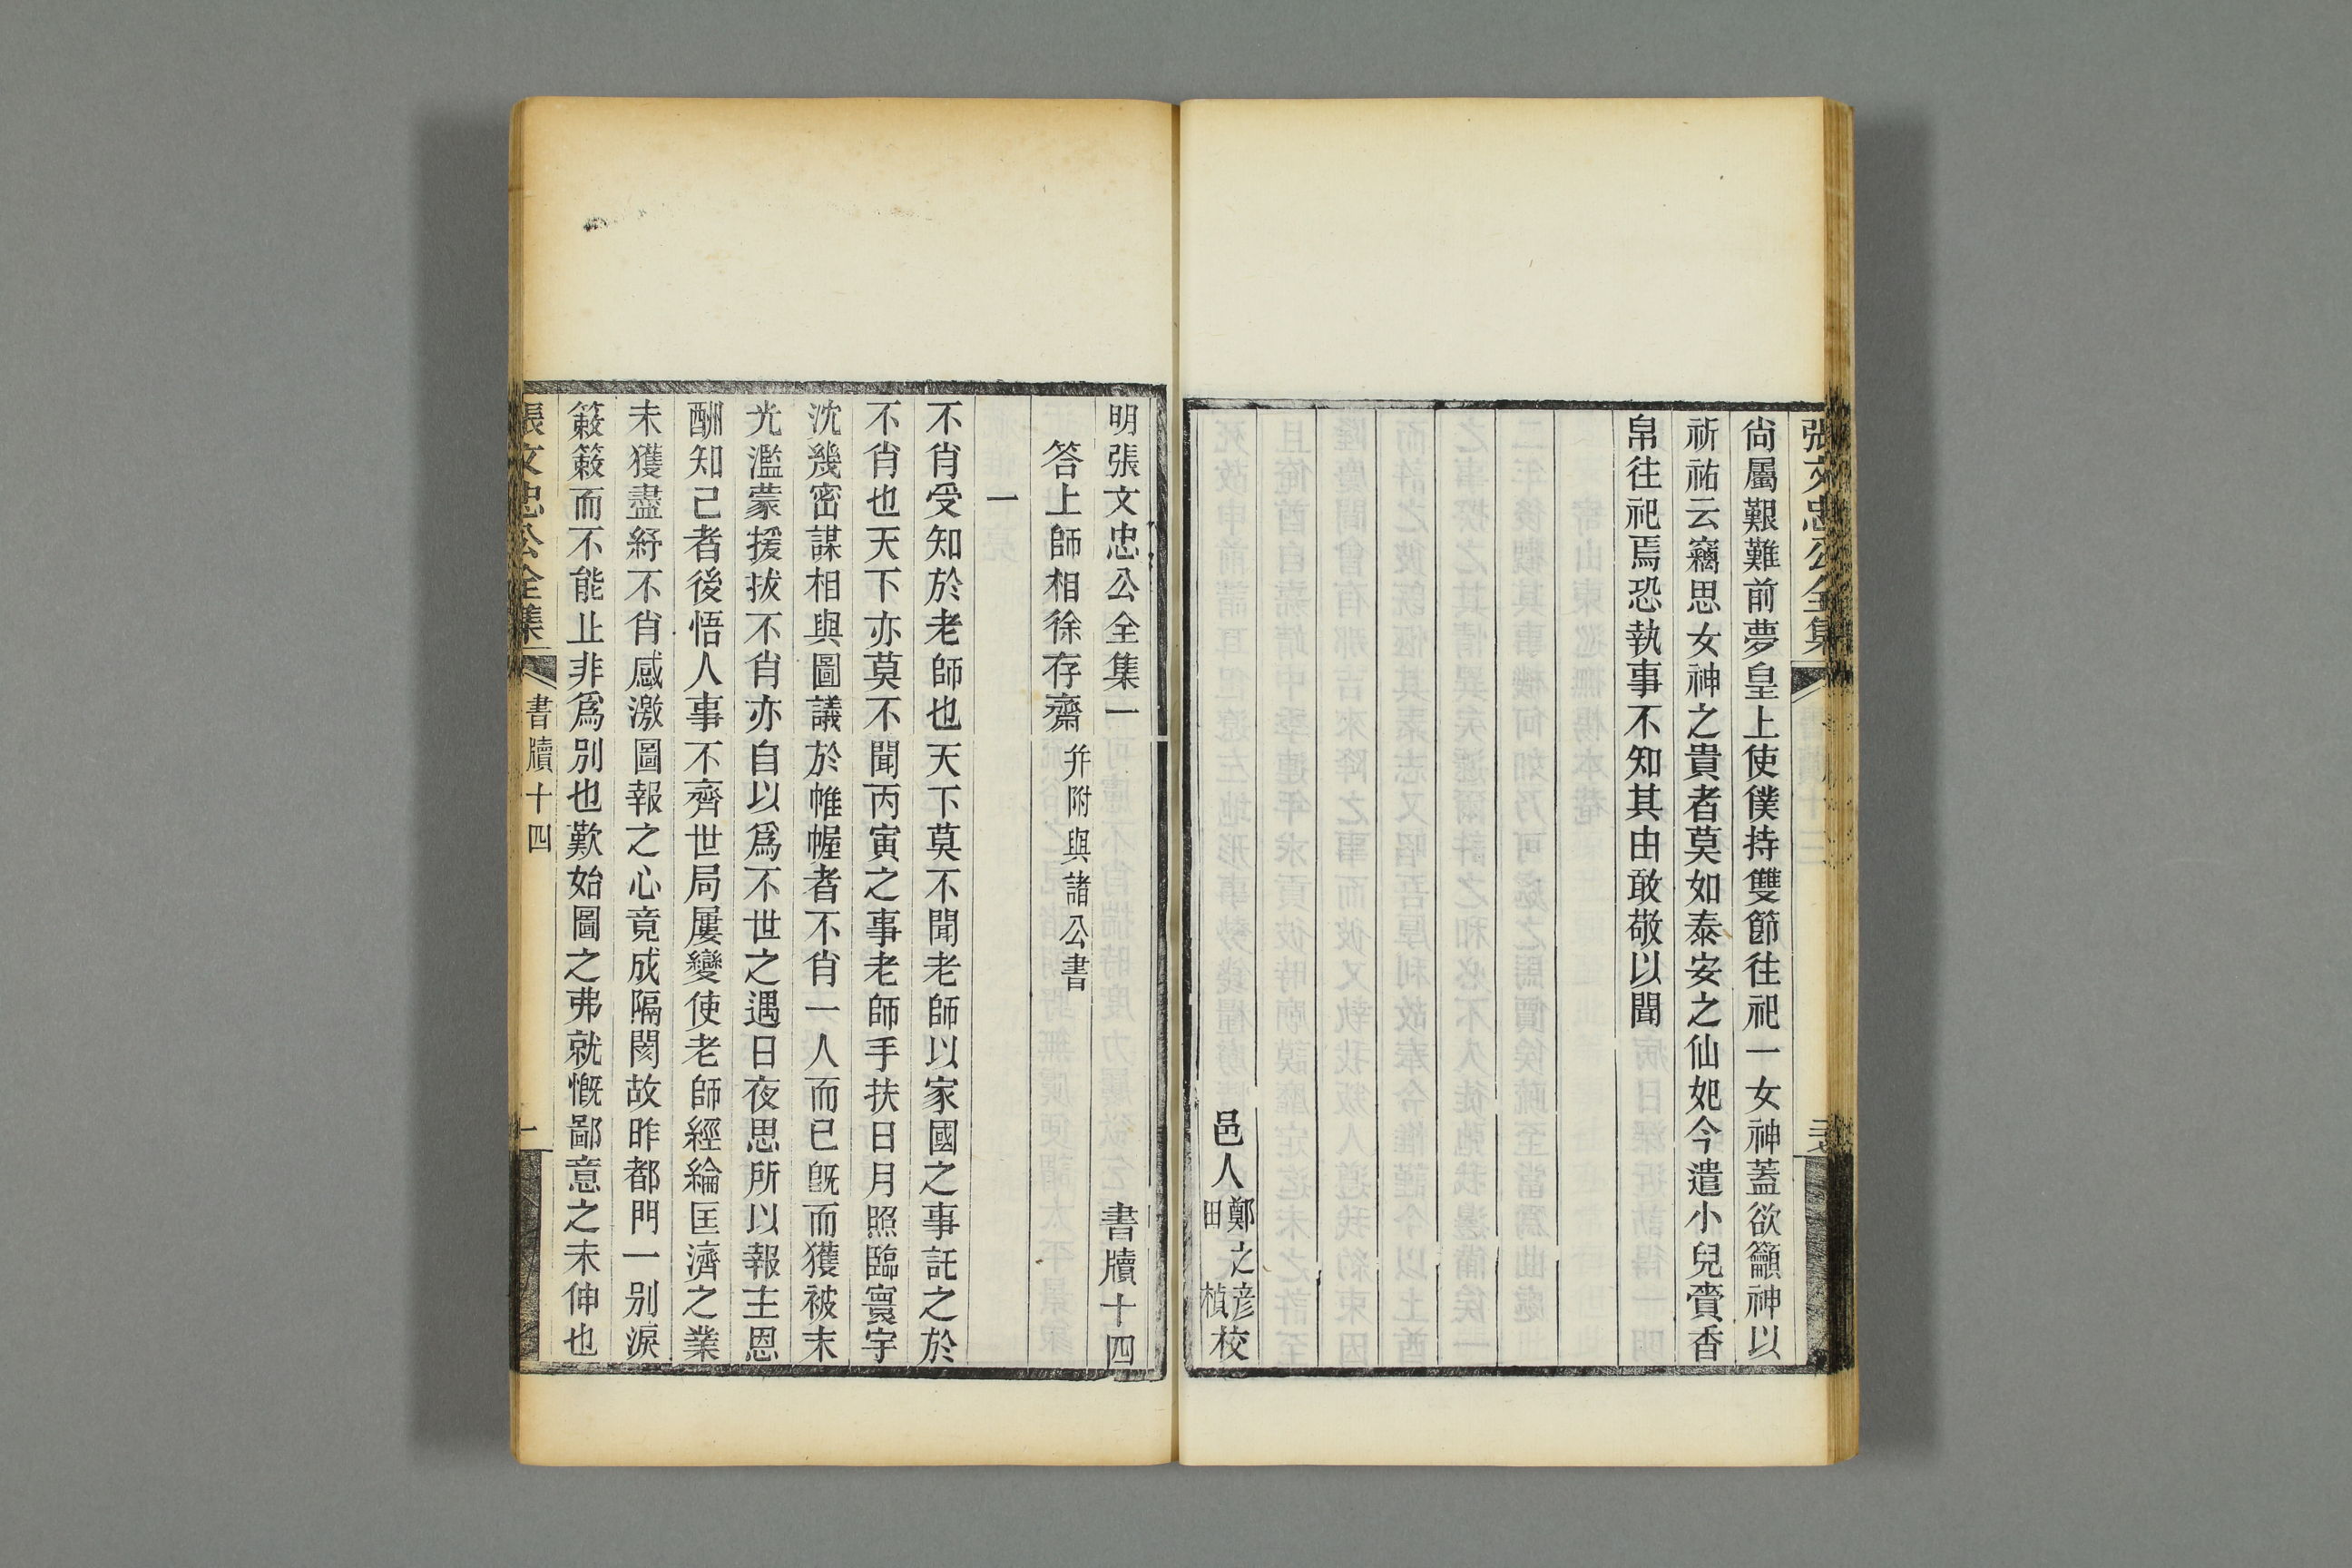 張文忠公全集
尙屬艱難前夢皇上使僕持雙節往祀一女神蓋欲籲神以
祈祐云竊思女神之貴者莫如泰安之仙妃今遣小兒賫香
帛往祀焉恐執事不知其由敢敬以聞
邑人鄭之彥
田楨校
明張文忠公全集一 書牘十四
答上師相徐存齋 幷附與諸公書
一
不肖受知於老師也天下莫不聞老師以家國之事託之於
不肖也天下亦莫不聞丙寅之事老師手扶日月照臨寰宇
沈幾密謀相與圖議於帷幄者不肖一人而已旣而獲被末
光濫蒙援拔不肖亦自以爲不世之遇日夜思所以報主恩
酬知己者後悟人事不齊世局屢變使老師經綸匡濟之業
未獲盡紓不肖感激圖報之心竟成隔閡故昨都門一別淚
簌簌而不能止非爲別也歎始圖之弗就慨鄙意之未伸也
張文忠公全集 書牘十四 一